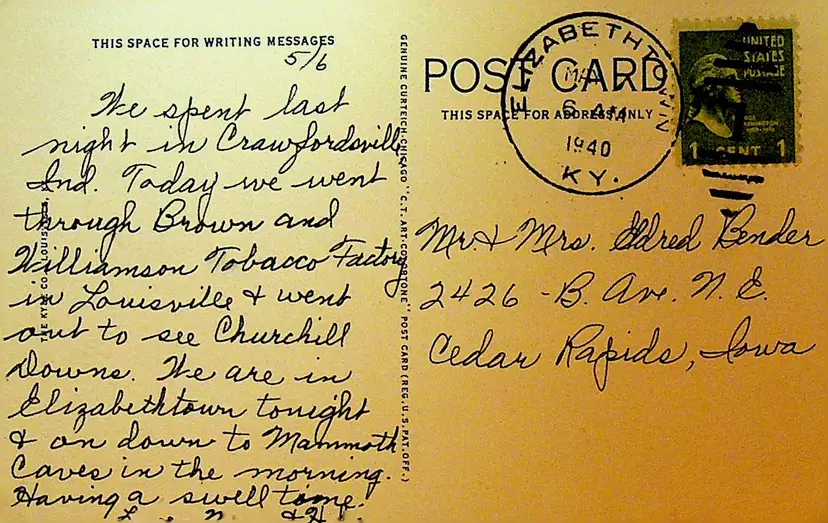 THIS SPACE FOR WRITING MESSAGES
5/6
We spent last
night in Crawfordsville
Ind. Today we went
through Brown and
Williamson Tobacco Factory
in Louisville & went
out to see Churchill
Downs. We are in
Elizabethtown tonight
& on down to Mammoth
Caves in the morning.
Having a swell time.
GENUINE CURTEICH-CHICAGO "C.T. ART-COLORTONE" POST CARD (REG. U.S. PAT. OFF.)
POST CARD
THIS SPACE FOR ADDRESS ONLY
ELIZABETHTOWN
1940
KY.
UNITED
STATES
POSTAGE
1 CENT 1
Mr & Mrs. Eldred Bender
2426 - B. Ave. N. E.
Cedar Rapids, Iowa